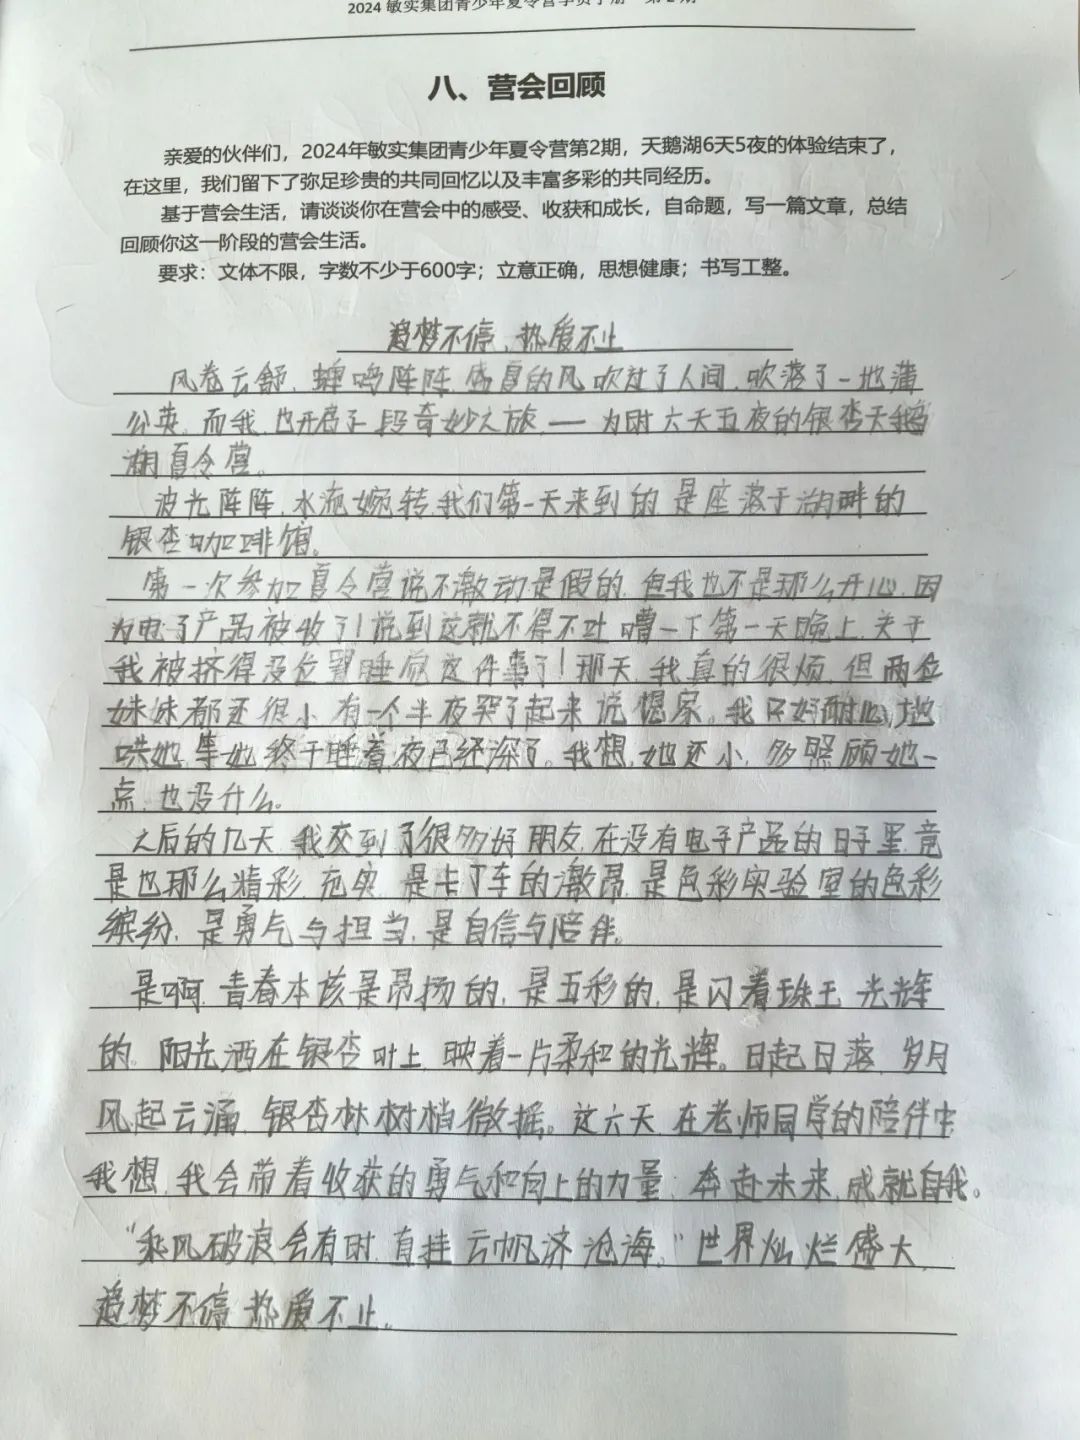 2024 敏实集团青少年夏令营学员手册 第2期
八、营会回顾
亲爱的伙伴们，2024年敏实集团青少年夏令营第2期，天鹅湖6天5夜的体验结束了，
在这里，我们留下了弥足珍贵的共同回忆以及丰富多彩的共同经历。
基于营会生活，请谈谈你在营会中的感受、收获和成长，自命题，写一篇文章，总结
回顾你这一阶段的营会生活。
要求：文体不限，字数不少于600字；立意正确，思想健康；书写工整。
追梦不停，热爱不止
风卷云舒，蝉鸣阵阵，盛夏的风吹过了人间，吹落了一地蒲
公英，而我，也开启了一段奇妙之旅，——为时六天五夜的银杏天鹅
湖夏令营。
波光阵阵，水流婉转，我们第一天来到的，是座落于湖畔的
银杏咖啡馆。
第一次参加夏令营说不激动是假的，但我也不是那么开心，因
为电子产品被收了！说到这就不得不吐嘈一下第一天晚上，关于
我被挤得没位置睡觉这件事了！那天，我真的很烦，但两位
妹妹都还很小，有一个半夜哭了起来说想家。我只好耐心地
哄她，等她终于睡着，夜已经深了。我想，她还小，多照顾她一
点，也没什么。
之后的几天，我交到了很多好朋友，在没有电子产品的日子里，竟
是也那么精彩，充实，是卡丁车的激昂，是色彩实验室的色彩
缤纷，是勇气与担当，是自信与陪伴。
是啊，青春本该是昂扬的，是五彩的，是闪着珠玉光辉
的。阳光洒在银杏叶上，映着一片柔和的光辉。日起日落，岁月
风起云涌，银杏林树梢微摇。这六天，在老师同学的陪伴中
我想，我会带着收获的勇气和向上的力量，奔赴未来，成就自我。
“乘风破浪会有时，直挂云帆济沧海。”世界灿烂盛大，
追梦不停，热爱不止。